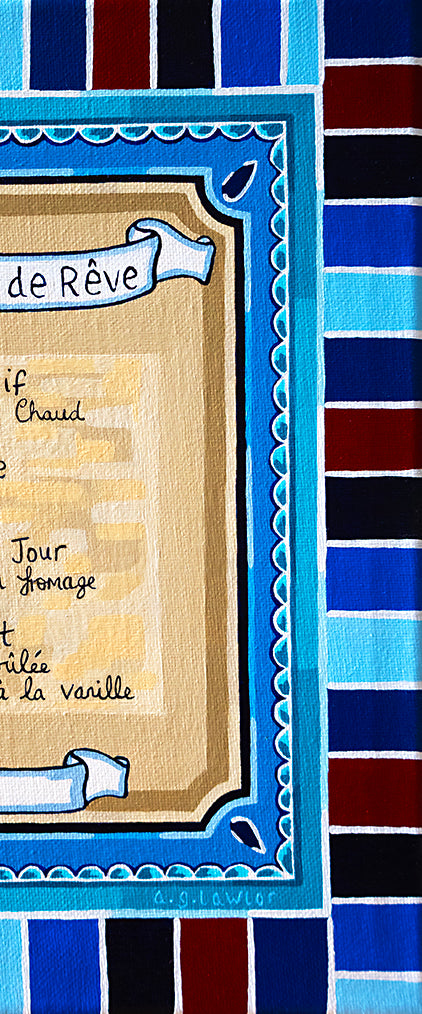 de Rêve
if
Chaud
e
Jour
fromage
t
rûlée
à la vanille
a.g.lawlor